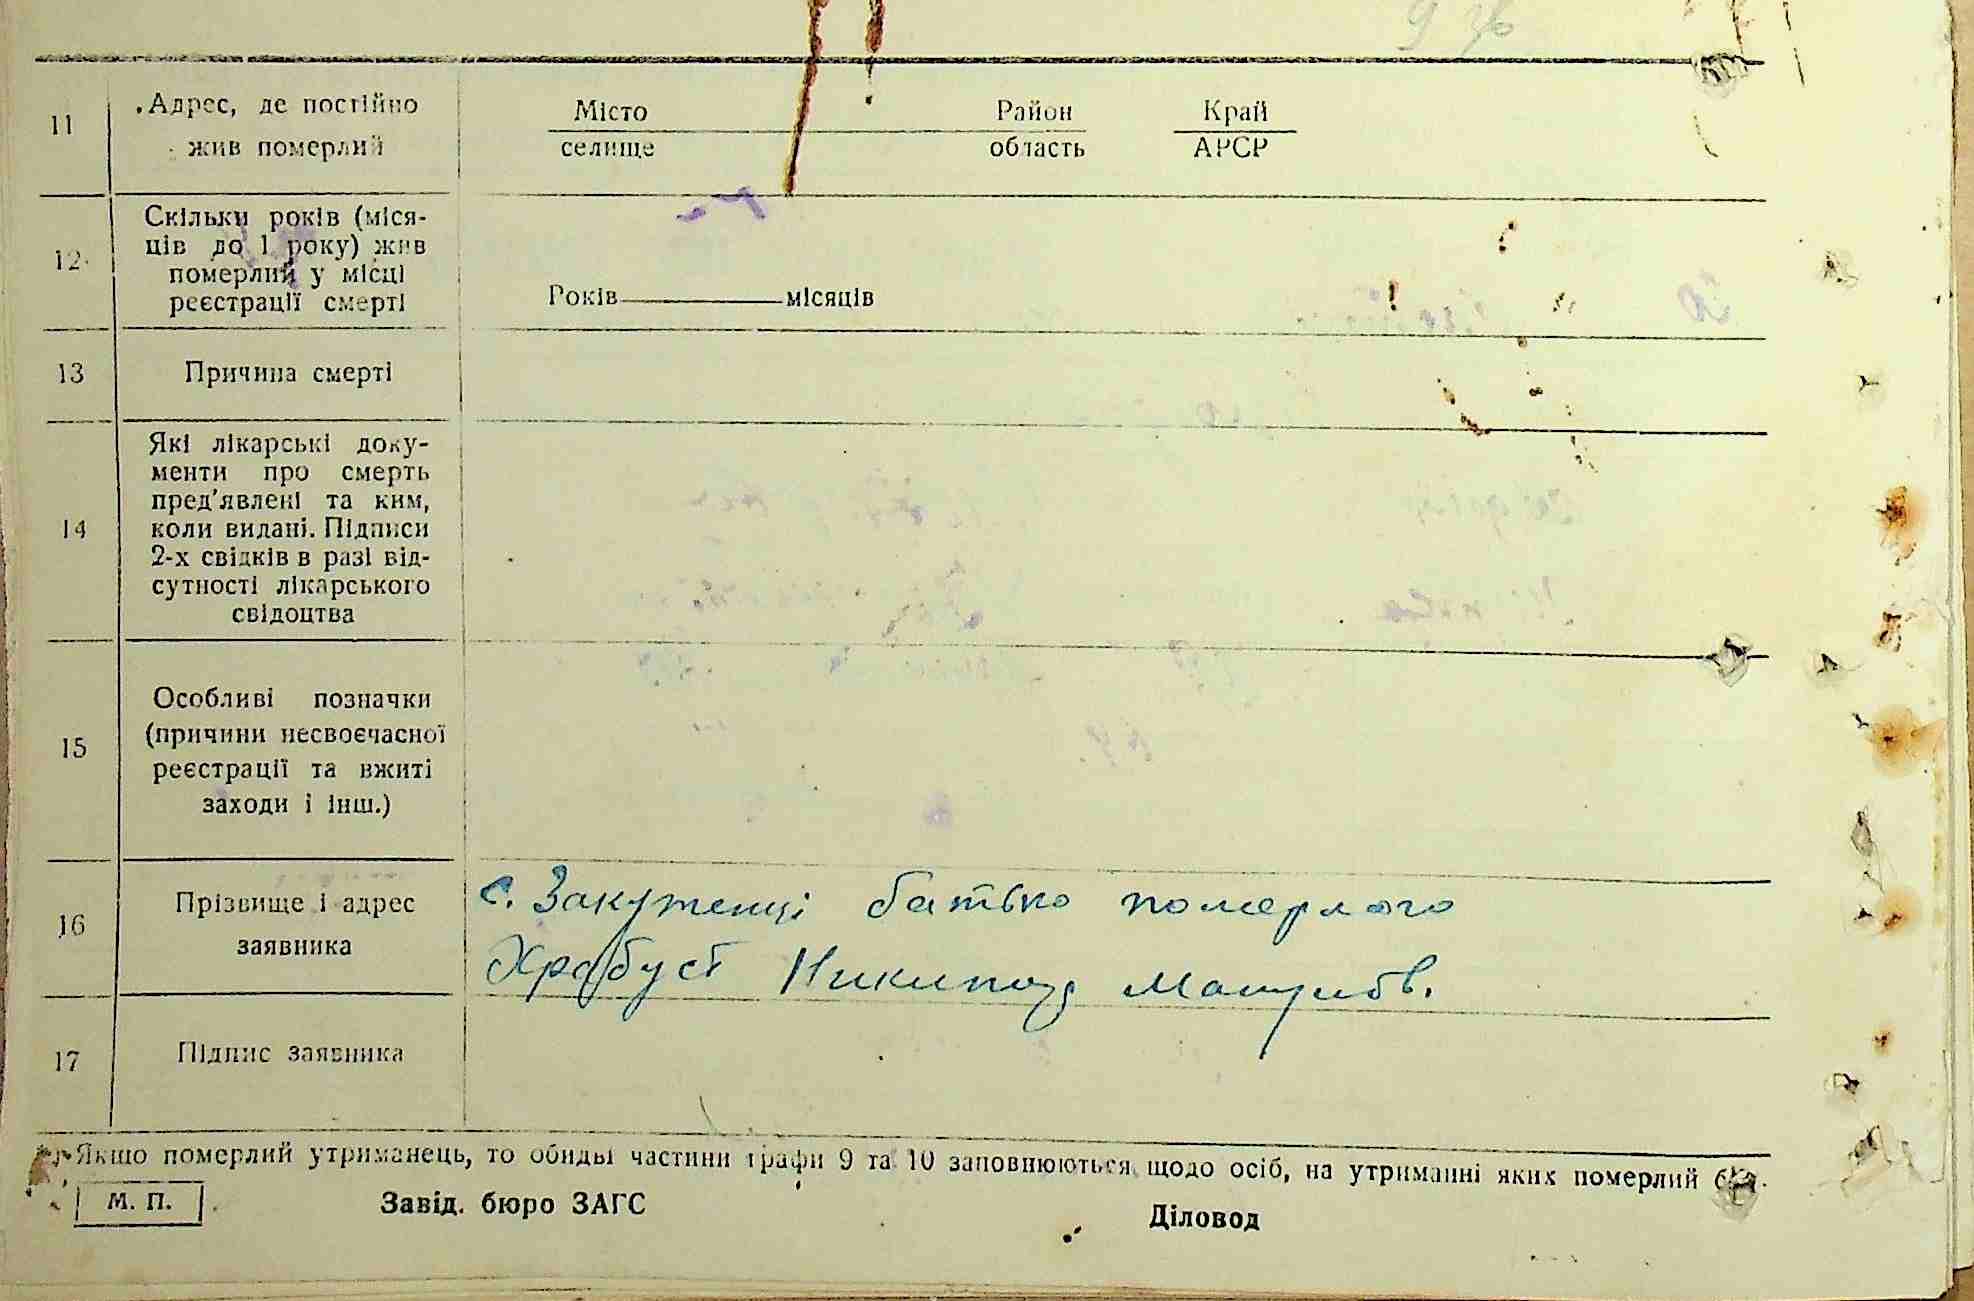 11
Адрес, де постійно
жив померлий
Місто Район Край
селище область АРСР
12
Скільки років (міся-
ців до 1 року) жив
померлий у місці
реєстрації смерті
Років місяців
13
Причина смерті
14
Які лікарські доку-
менти про смерть
пред'явлені та ким,
коли видані. Підписи
2-х свідків в разі від-
сутності лікарського
свідоцтва
15
Особливі позначки
(причини несвоєчасної
реєстрації та вжиті
заходи і інш.)
16
Прізвище і адрес
заявника
с. Закутенці батько померлого
Храбуст Никипор
17
Підпис заявника
Якщо померлий утриманець, то обидві частини графи 9 та 10 заповнюються щодо осіб, на утриманні яких померлий був.
М. П. Завід. бюро ЗАГС Діловод